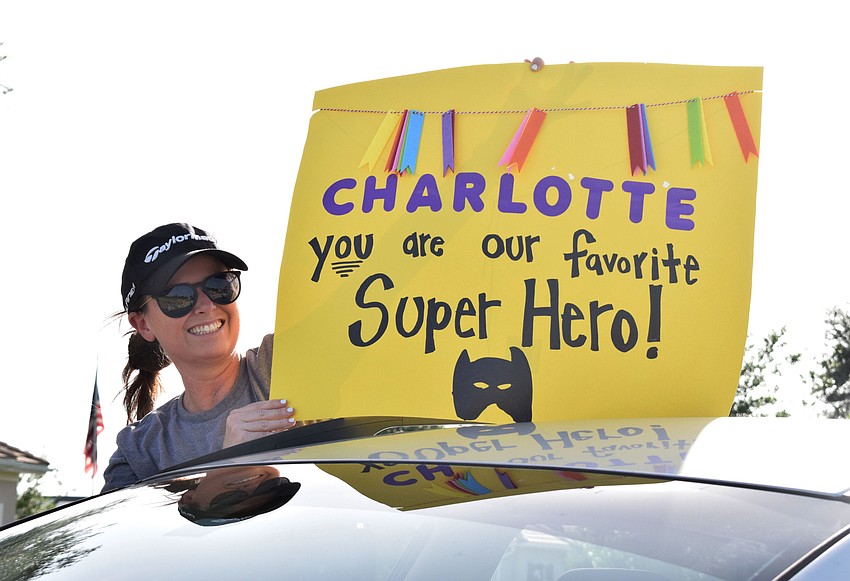 TaylorMade
CHARLOTTE
you are our favorite
Super Hero!